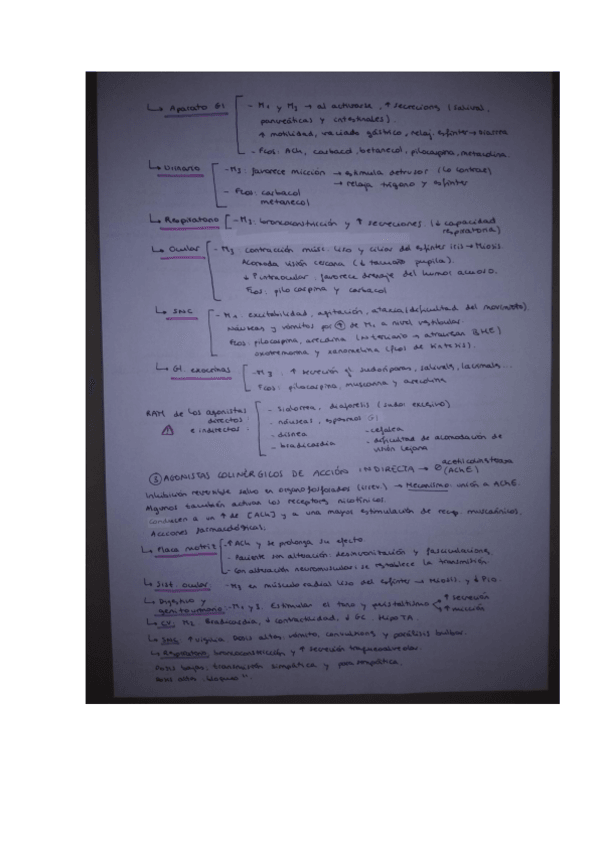 ↳ Aparato GI - M1 y M3 → al activarse, ↑ secreciones (salival,
pancreáticas y intestinales).
↑ motilidad, vaciado gástrico, relaj. esfínter → diarrea
- Fcos: ACh, carbacol, betanecol, pilocarpina, metacolina.
↳ Urinario - M3: favorece micción → estimula detrusor (lo contrae)
→ relaja trígono y esfínter
- Fcos: carbacol
metanecol
↳ Respiratorio - M3: broncoconstricción y ↑ secreciones (↓ capacidad
respiratoria)
↳ Ocular - M3 contracción músc. liso y ciliar del esfínter iris → Miosis.
Acomoda visión cercana (↓ tamaño pupila).
↓ P intraocular: favorece drenaje del humor acuoso.
Fcos: pilocarpina y carbacol
↳ SNC - M1 excitabilidad, agitación, ataxia (dificultad del movimiento).
Náuseas y vómitos por ⊕ de M1 a nivel vestibular.
Fcos: pilocarpina, arecolina (N terciario → atraviesan BHE)
oxotremorina y xanomelina (fcos de síntesis).
↳ Gl. exocrinas - M3: ↑ secreción gl. sudoríparas, salivales, lacrimales...
Fcos: pilocarpina, muscarina y arecolina
RAM de los agonistas
directos
e indirectos:
- Sialorrea, diaforesis (sudor excesivo)
- náuseas, espasmos GI
- disnea
- bradicardia
- cefalea
- dificultad de acomodación de
visión lejana
③ AGONISTAS COLINÉRGICOS DE ACCIÓN INDIRECTA → ∅ acetilcolinesterasa
(AChE)
Inhibición reversible salvo en organofosforados (irrev.) → Mecanismo: unión a AChE.
Algunos también activan los receptores nicotínicos.
Conducen a un ↑ de [ACh] y a una mayor estimulación de recep. muscarínicos.
Acciones farmacológicas:
↳ Placa motriz - ↑ ACh y se prolonga su efecto.
- Paciente sin alteración: desincronización y fasciculaciones
- Con alteración neuromuscular: se restablece la transmisión.
↳ Sist. ocular: - M3 en músculo radial liso del esfínter → miosis y ↓ PIO.
↳ Digestivo y
genitourinario: - M1 y 3. Estimular el tono y peristaltismo → ↑ secreción
→ ↑ micción
↳ CV: M2. Bradicardia, ↓ contractividad, ↓ GC. HipoTA.
↳ SNC ↑ vigilia. Dosis altas, vómito, convulsiones y parálisis bulbar.
↳ Respiratorio: broncoconstricción y ↑ secreción traqueobronquial.
Dosis bajas, transmisión simpática y parasimpática.